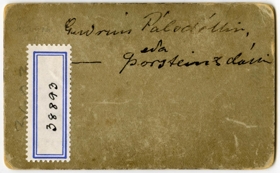 Guðrún Pálsdóttir,
eða
— Þorsteinsdóttir
38893